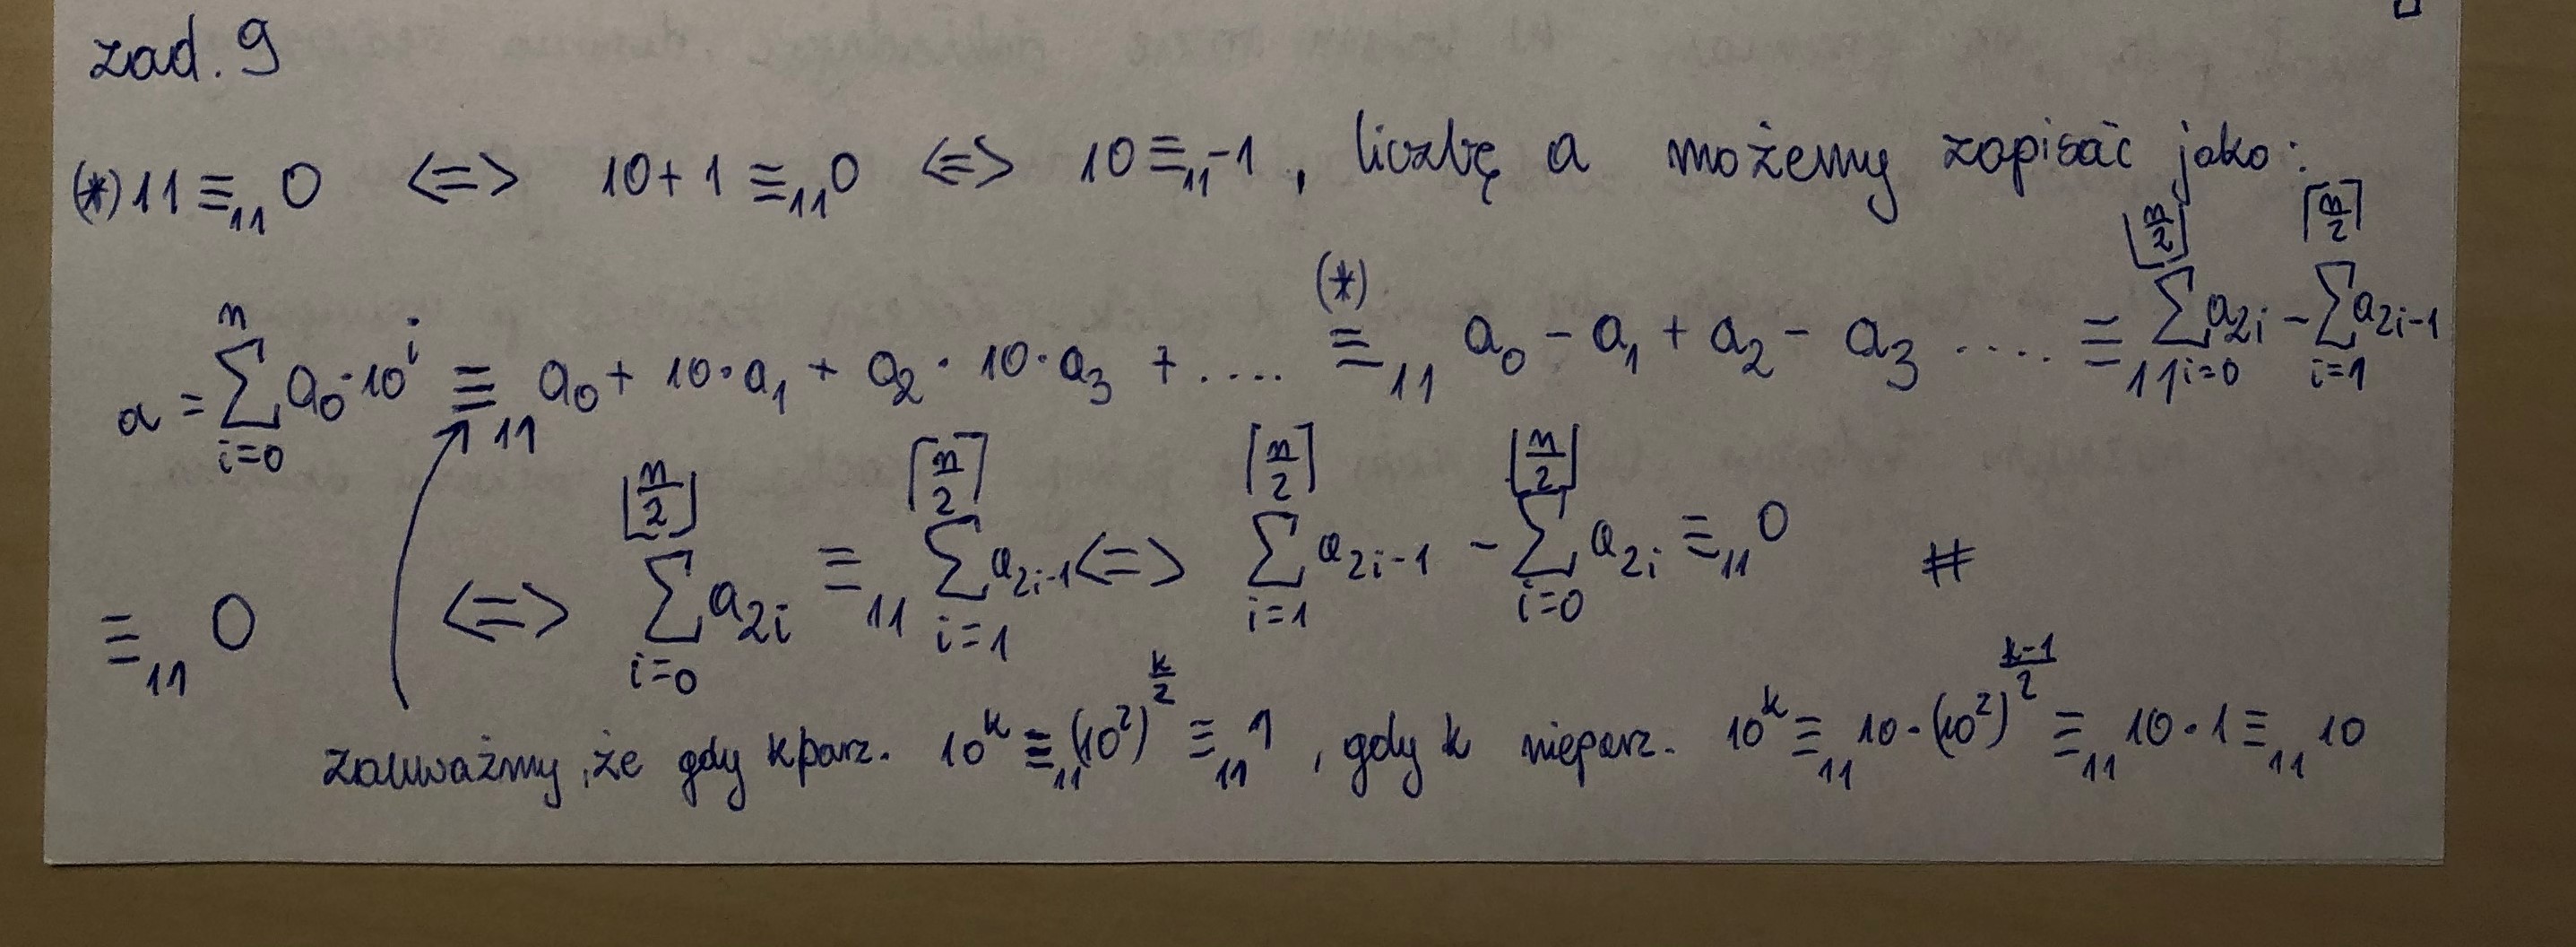 zad. 9
(*) 11 ≡₁₁ 0 <=> 10 + 1 ≡₁₁ 0 <=> 10 ≡₁₁ -1 , liczbę a możemy zapisać jako:
a = \sum_{i=0}^{n} a₀·10^i ≡₁₁ a₀ + 10·a₁ + a₂ · 10·a₃ + .... ≡₁₁^{(*)} a₀ - a₁ + a₂ - a₃ .... ≡₁₁ \sum_{i=0}^{⌊n/2⌋} a_{2i} - \sum_{i=1}^{⌈n/2⌉} a_{2i-1}
≡₁₁ 0 <=> \sum_{i=0}^{⌊n/2⌋} a_{2i} ≡₁₁ \sum_{i=1}^{⌈n/2⌉} a_{2i-1} <=> \sum_{i=1}^{⌈n/2⌉} a_{2i-1} - \sum_{i=0}^{⌊n/2⌋} a_{2i} ≡₁₁ 0 #
zauważmy, że gdy k parz. 10^k ≡₁₁ (10²)^{k/2} ≡₁₁ 1 , gdy k nieparz. 10^k ≡₁₁ 10·(10²)^{(k-1)/2} ≡₁₁ 10·1 ≡₁₁ 10